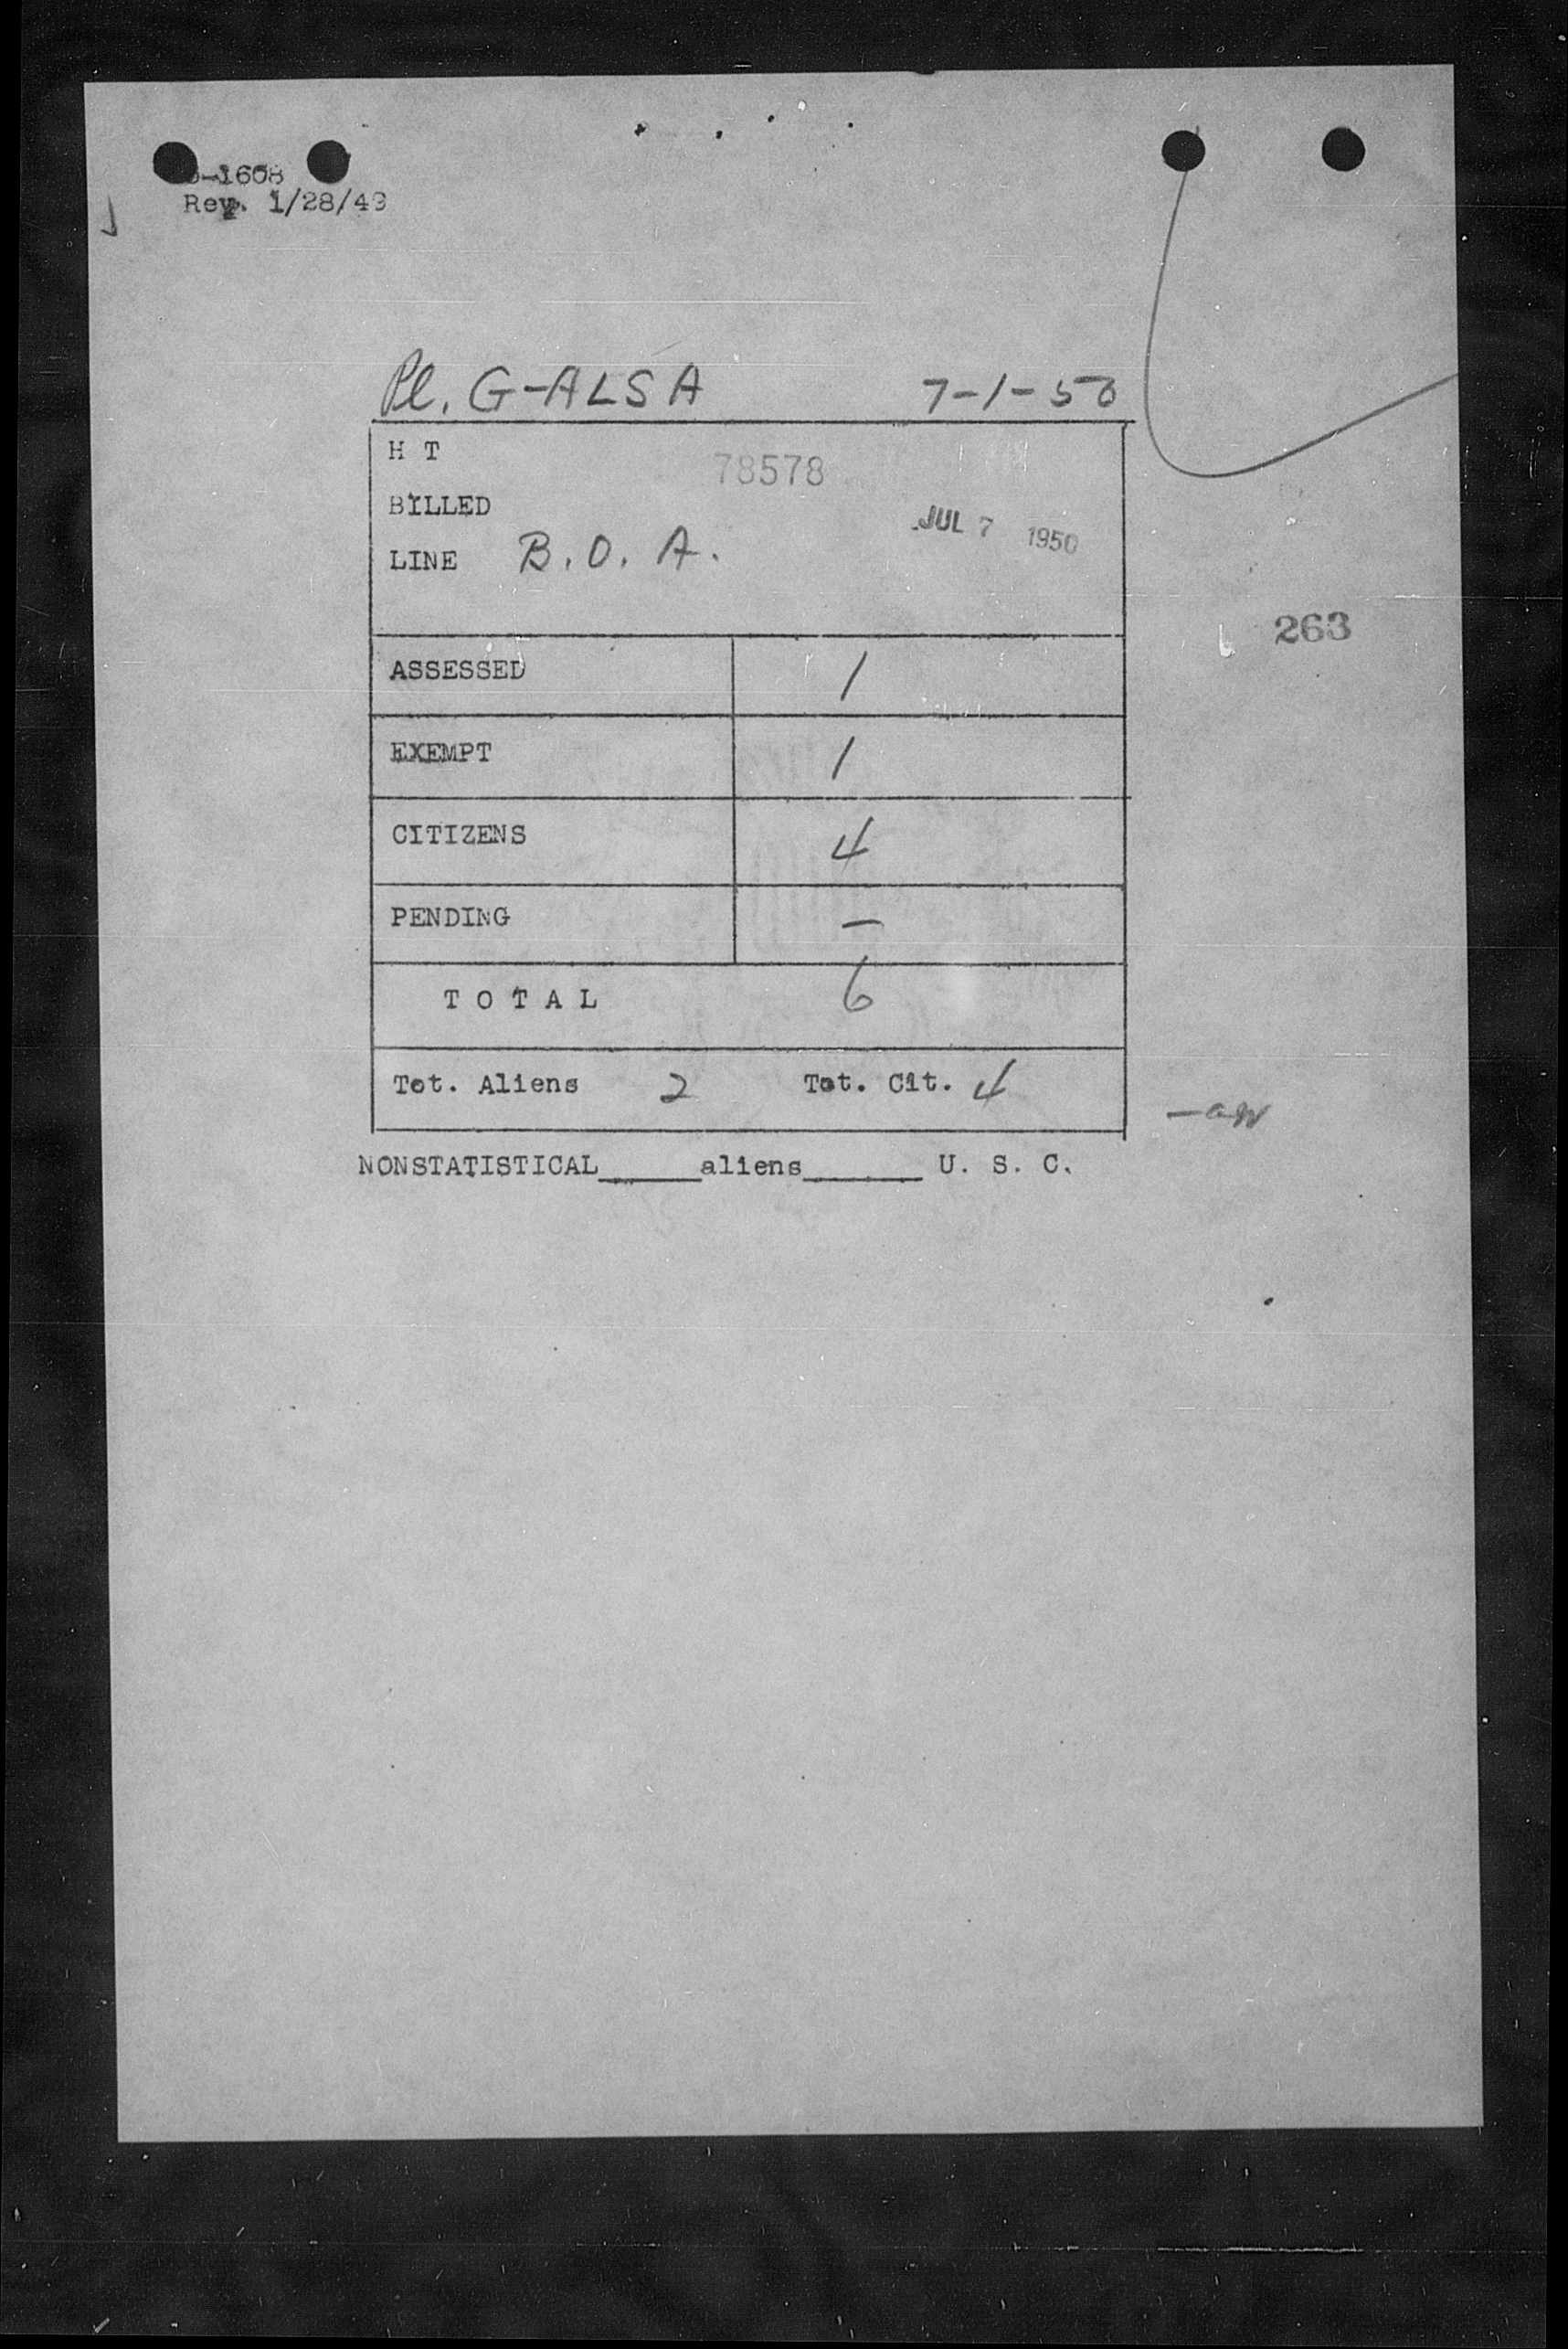 -1608
Rev. 1/28/49
Pl. G-ALSA 7-1-50
H T 78578
BILLED
JUL 7 1950
LINE B.O.A.
263
ASSESSED 1
EXEMPT 1
CITIZENS 4
PENDING —
TOTAL 6
Tot. Aliens 2 Tot. Cit. 4
NONSTATISTICAL_____aliens______ U. S. C.